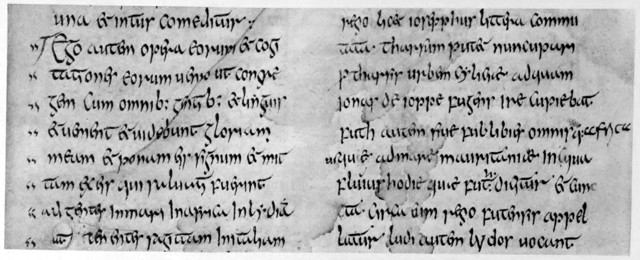 & intus comeditur:
Ego autem opera eorum & cog
tationes eorum uenio ut congre
gem cum omnib: gentib: & linguis
& uenient & uidebunt gloriam
meam & ponam eis signum & mit
tam ex eis qui saluati fuerint
ad gentes in mari in africa in lydia
tendentes sagittam in italiam
regio licet iosepphus littera commu
tata tharsum putet nuncupari
p tharsis urbem ciliciae ad quam
ionas de ioppe fugens ire cupiebat
futh autem siue phut libies omnisq: affric
usque ad mare mauritaniae in qua
fluuius hodie que futh dicitur & cunc
ta circa eum regio futensis appel
latur ludi autem lydos uocant